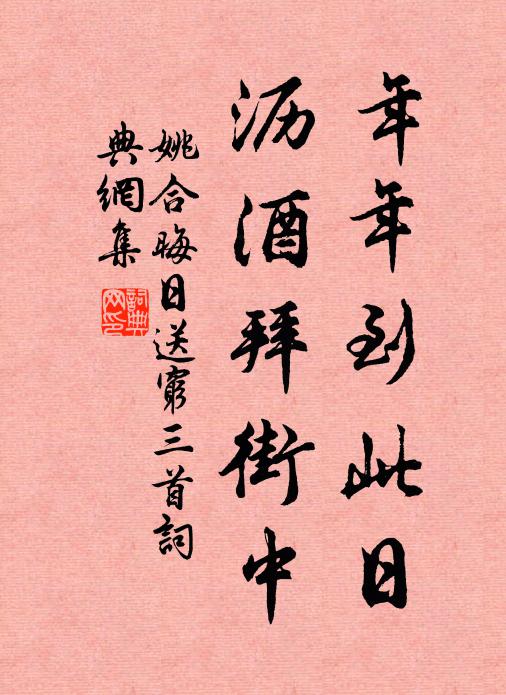 年年到此日
沥酒拜街中
姚合晦日送窮三首詞
典網集
詞典网印